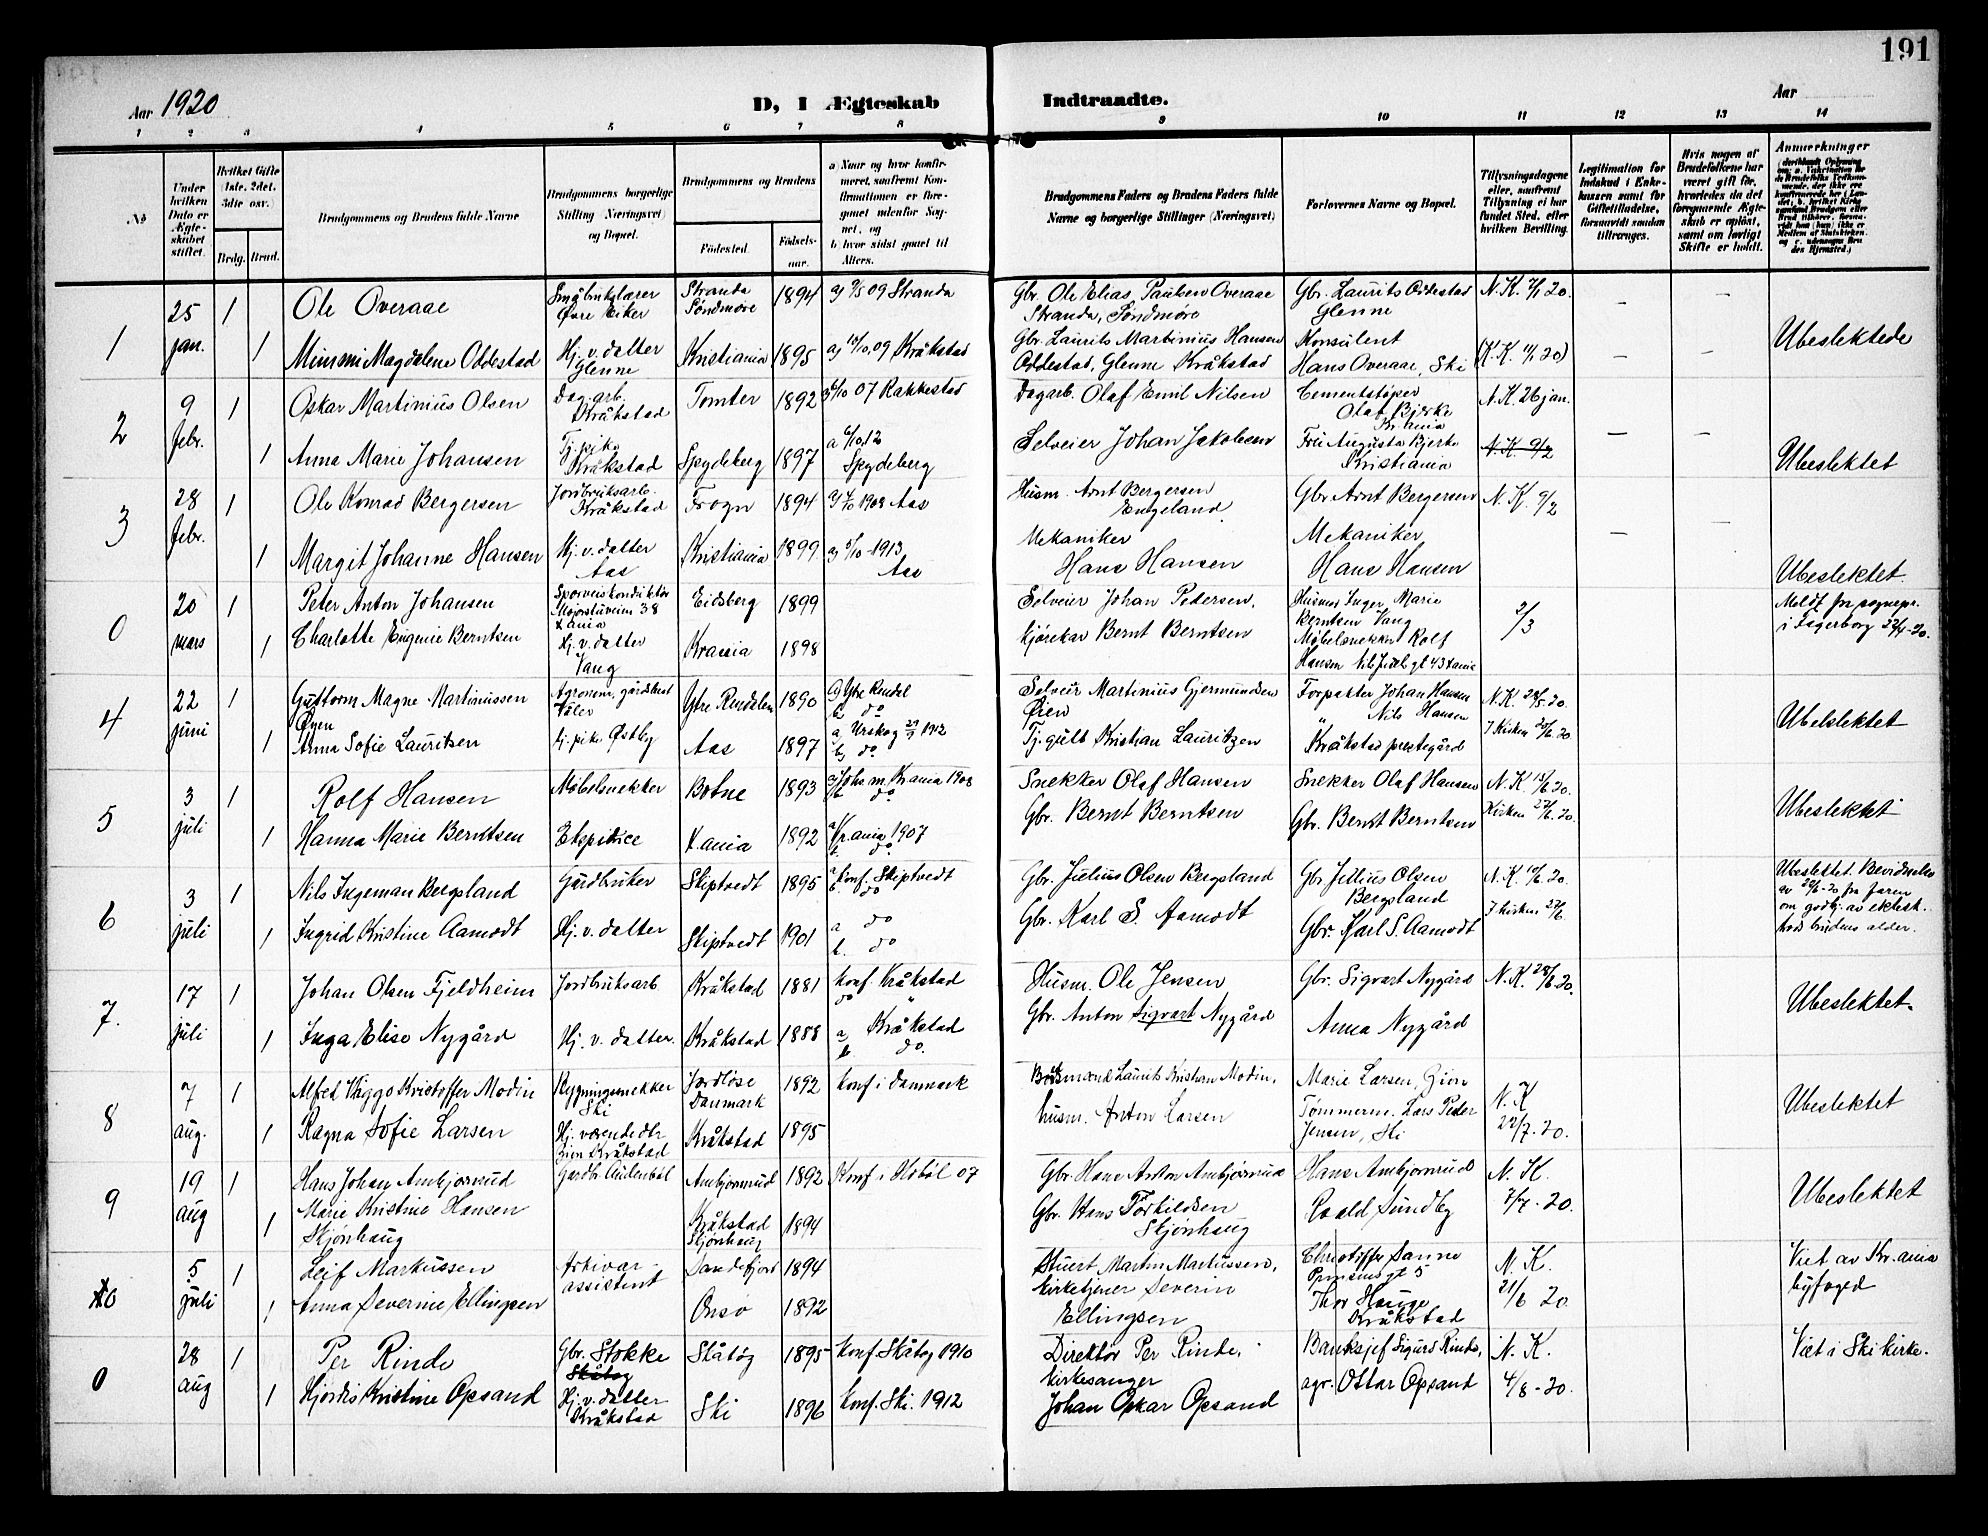 191
Aar 1920
D, I Ægteskab
Indtraadte.
Aar
1 2 3 4 5 6 7 8 9 10 11 12 13 14
No
Under hvilken Dato er Ægteskabet stiftet.
Hvilket Gifte (1ste, 2det, 3die osv.)
Brdg. Brud.
Brudgommens og Brudens fulde Navne
Brudgommens borgerlige Stilling (Næringsvei) og Bopæl.
Brudgommens og Brudens
Födested. Födsels-aar.
a Naar og hvor konfirmeret, saafremt Konfirmationen er foregaaet udenfor Sognet, og
b hvor sidst gaaet til Alters.
Brudgommens Faders og Brudens Faders fulde Navne og borgerlige Stillinger (Næringsvei)
Forlovernes Navne og Bopæl.
Tillysningsdagene eller, saafremt Tillysning ei har fundet Sted, efter hvilken Bevilling.
Legitimation for Indskud i Enkekassen samt for Giftetilladelse, forsaavidt saadan tiltrænges.
Hvis nogen af Brudefolkene har været gift før, hvorledes da det foregaaende Ægteskab er opløst, samt om lovligt Skifte er holdt.
Anmerkninger
1 25 jan. 1 Ole Overaae Småbrukslærer Øvre Eiker Stranda Söndmöre 1894 a) 09 Stranda Gbr. Ole Elias Paulsen Overaae Stranda, Söndmöre Gbr. Laurits Oddestad Glenne N.K. 20. – –
1 Mimmi Magdalene Oddestad Hj. v. datter Glenne Kristiania 1895 a) 09 Kråkstad Gbr. Laurits Martinius Hansen Oddestad, Glenne Kråkstad Konsulent Hans Overaae, Ski (K.K. 20) – – Ubeslektede
2 9 febr. 1 Oskar Martinius Olsen Dagarb. Kråkstad Tomter 1892 07 Rakkestad Dagarb. Olaf Emil Nilsen Cementstøper Olaf Bjerke Kr.ania N.K. 26 jan.
1 Anna Marie Johansen Tj.pike Kråkstad Spydeberg 1897 a 6/10 12 Spydeberg Selveier Johan Jakobsen Fru Augusta Bjerke Kristiania N.K. 9/2 – – Ubeslektet
3 28 febr. 1 Ole Konrad Bergersen Jordbruksarb. Kråkstad Frogn 1894 a) 1908 Aas Husm. Arnt Bergersen Engeland Gbr. Arnt Bergersen N.K. 9/2
1 Margit Johanne Hansen Hj. v. datter Aas Kristiania 1899 a) 5/10 1913 Aas Mekaniker Hans Hansen Mekaniker Hans Hansen – – Ubeslektet.
0 20 mars 1 Peter Anton Johansen Sporveiskonduktør Majorstuveien 38 X ania Eidsberg 1899 Selveier Johan Pedersen, Husmor Inger Marie Berntsen Vang 2/3 Meldt fra sognepr. i Fagerborg 22/4-20.
1 Charlotte Eugenie Berntsen Hj. v. datter Vang Krania 1898 kjörekar Bernt Berntsen Möbelsnekker Rolf Hansen Nils Juels gt 43 X ania
4 22 juni 1 Guttorm Magne Martinussen Öyen Agronom, gårdsbest Våler Ytre Rendalen 1890 a) Ytre Rendal b do Selveier Martinius Gjermundsen Öien Forpakter Johan Hansen N.K. 20.
1 Anna Sofie Lauritsen tj. pike Östby Aas 1897 a, Urskog 1912 b, do Tj.gutt Kristian Lauritzen " Nils Hansen Kråkstad prestegård I Kirken 20/6 20 Ubeslektet
5 3 juli 1 Rolf Hansen Möbelsnekker Botne 1893 a) Johs. m. Krania 1908 b do Snekker Olaf Hansen Snekker Olaf Hansen N.K. 20.
1 Hanna Marie Berntsen X.ania 1892 a Kr.ania 1907 b. do Gbr. Bernt Berntsen Gbr. Bernt Berntsen Kirken 27/6 20. Ubeslektet
6 3 juli 1 Nils Ingeman Bergsland Gårdbruker Skiptvedt 1895 a konf. Skiptvedt b do Gbr. Julius Olsen Bergsland Gbr Julius Olsen Bergsland N.K. 20.
1 Ingrid Kristine Aamodt Hj. v. datter Skiptvedt 1901 a do b. do Gbr. Karl S. Aamodt Gbr. Karl S. Aamodt I kirken 27/6. Ubeslektet. Bevidnelse av 20/6-20 fra faren om godkj. av ektesk. trods brudens alder.
7. 17 juli 1 Johan Olsen Fjeldheim Jordbruksarb Kråkstad 1881 konf. Kråkstad do " Husm. Ole Jensen Gbr. Sigvart Nygård N.K. 28/6 20.
1 Inga Elise Nygård Hj. v. datter. Kråkstad 1888 a Kråkstad b. do. Gbr. Anton Sigvart Nygård Anna Nygård Ubeslektet.
8 7 aug. 1 Alfred Viggo Kristoffer Modin Bygningssnekker Ski Jordløse Danmark 1892 konf i Danmark Laurits Kristian Modin, Marie Larsen, Gion N.K
1 Ragna Sofie Larsen Hj. værende dtr Kråkstad Kråkstad 1895 husm. Anton Larsen Tömmerm. Lars Peder Jensen, Ski 22/7.20. Ubeslektet
9 19 aug 1 Hans Johan Ambjørnrud Gårdbr. Ambjørnrud 1892 Konf i Hobøl 07 Gbr. Hans Anton Ambjørnrud Hans Ambjørnrud N.K.
1 Marie Kristine Hansen Skjönhaug Kråkstad Skjönhaug 1894 Gbr. Hans Torkildsen Skjönhaug Roald Sundby 7/7-20. Ubeslektet
10 5 juli 1 Leif Markussen Arkivar-assistent Sandefjord 1894 Stuert Martin Markussen, Christoffer Sanne Prinsensgt 5 N.K.
1 Anna Severine Ellingsen Onsø 1892 kirketjener Severin Ellingsen Thor Hauge Kråkstad 21/6 20. Viet av Kr.ania byfoged
0 28 aug 1 Per Rinde Gbr. Stokke Skåtøy Skåtøy 1895 Konf. Skåtøy 1910 Direktør Per Rinde, Banksjef Sigurd Rinde, N.K.
1 Hjördis Kristine Opsand Hj. v. datter Kråkstad Ski 1896 Konf. Ski. 1912 kirkesanger Johan Oskar Opsand agr. Ottar Opsand 4/8-20. Viet i Ski kirke.